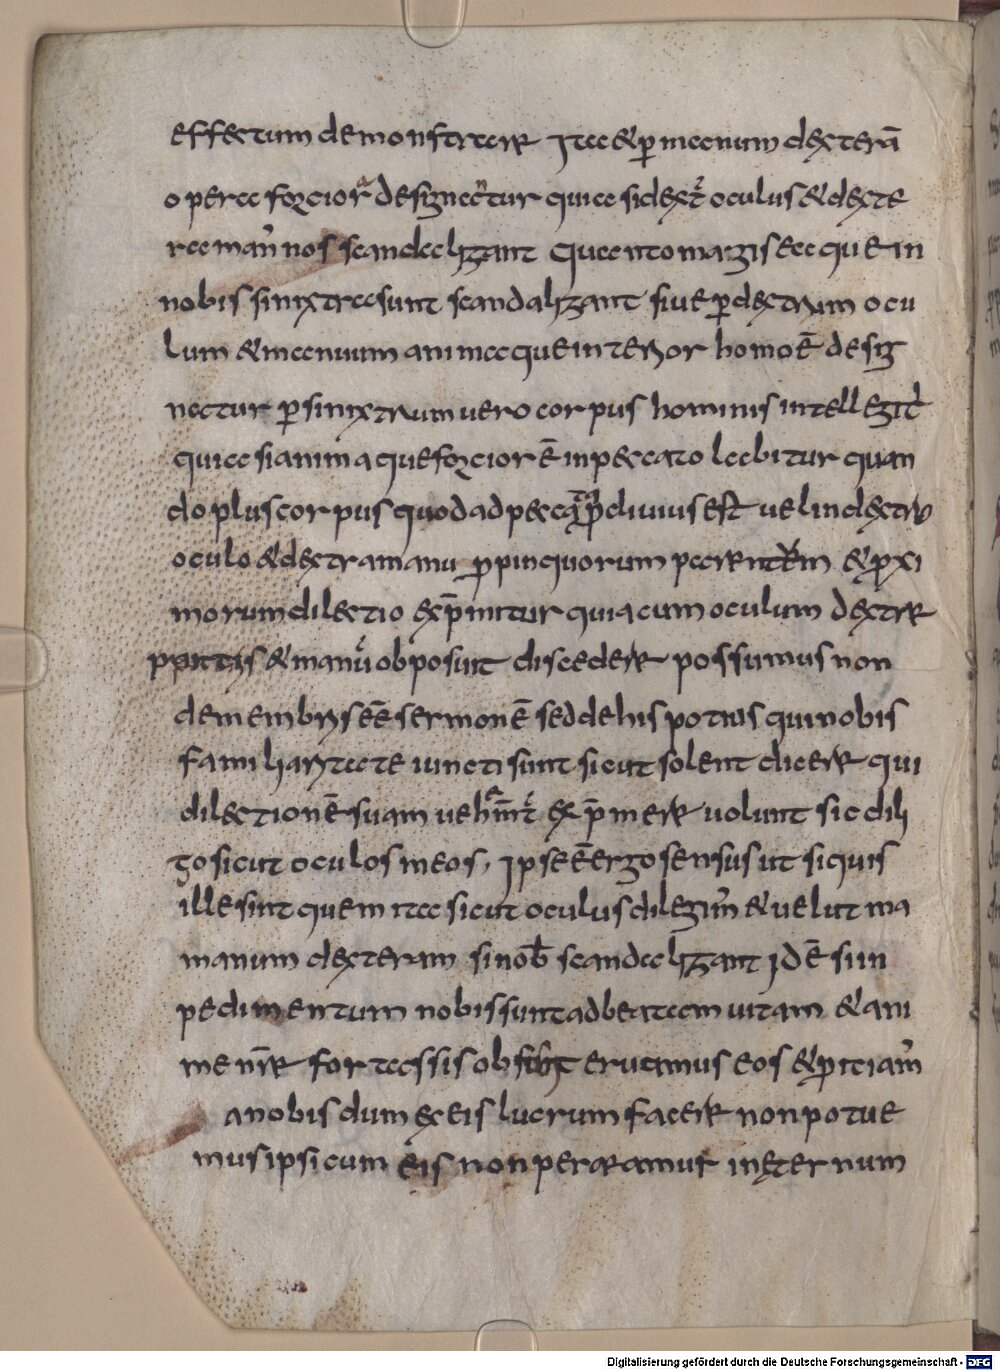 effectum demonstrare Ita & p̄ manum dexterā
opera forciora designantur quia si dext̄ oculus & dexte
ra man̄ nos scandalizant Quanto magis ea que in
nobis sinixtra sunt scandalizant siue p̄ dextrum ocu
lum & manuum anima que interior homo ē desig
natur p̄ sinixtrum uero corpus hominis intellegit̄
quia si anima que forcior ē in peccato labitur quan
do plus corpus quod ad pecca p̄cliuius est uel in dextro
oculo & dextra manu p̄pinquorum parentum & p̄xi
morum dilectio exp̄mitur quia cum oculum dexter
& manū ob posunt discedere possumus non
de membris eē sermonē sed de his potius qui nobis
familiaritate iuncti sunt sicut solent dicere qui
dilectionē suam uehem̄t exp̄mere uolunt sic dili
go sicut oculos meos, Ipse ē ergo sensus ut si quis
ille sint quem ita sicut oculus diligim̄ & uelut ma
manum dexteram si nob̄ scandalizant idē si in
pedimentum nobis sunt ad beatam uitam & ani
me nr̄e fortassis obsint eruamus eos & p̄iciam̄
a nobis dum ex eis lucrum facere non potue
mus ipsi cum eis non peramus in eternum
Digitalisierung gefördert durch die Deutsche Forschungsgemeinschaft - DFG